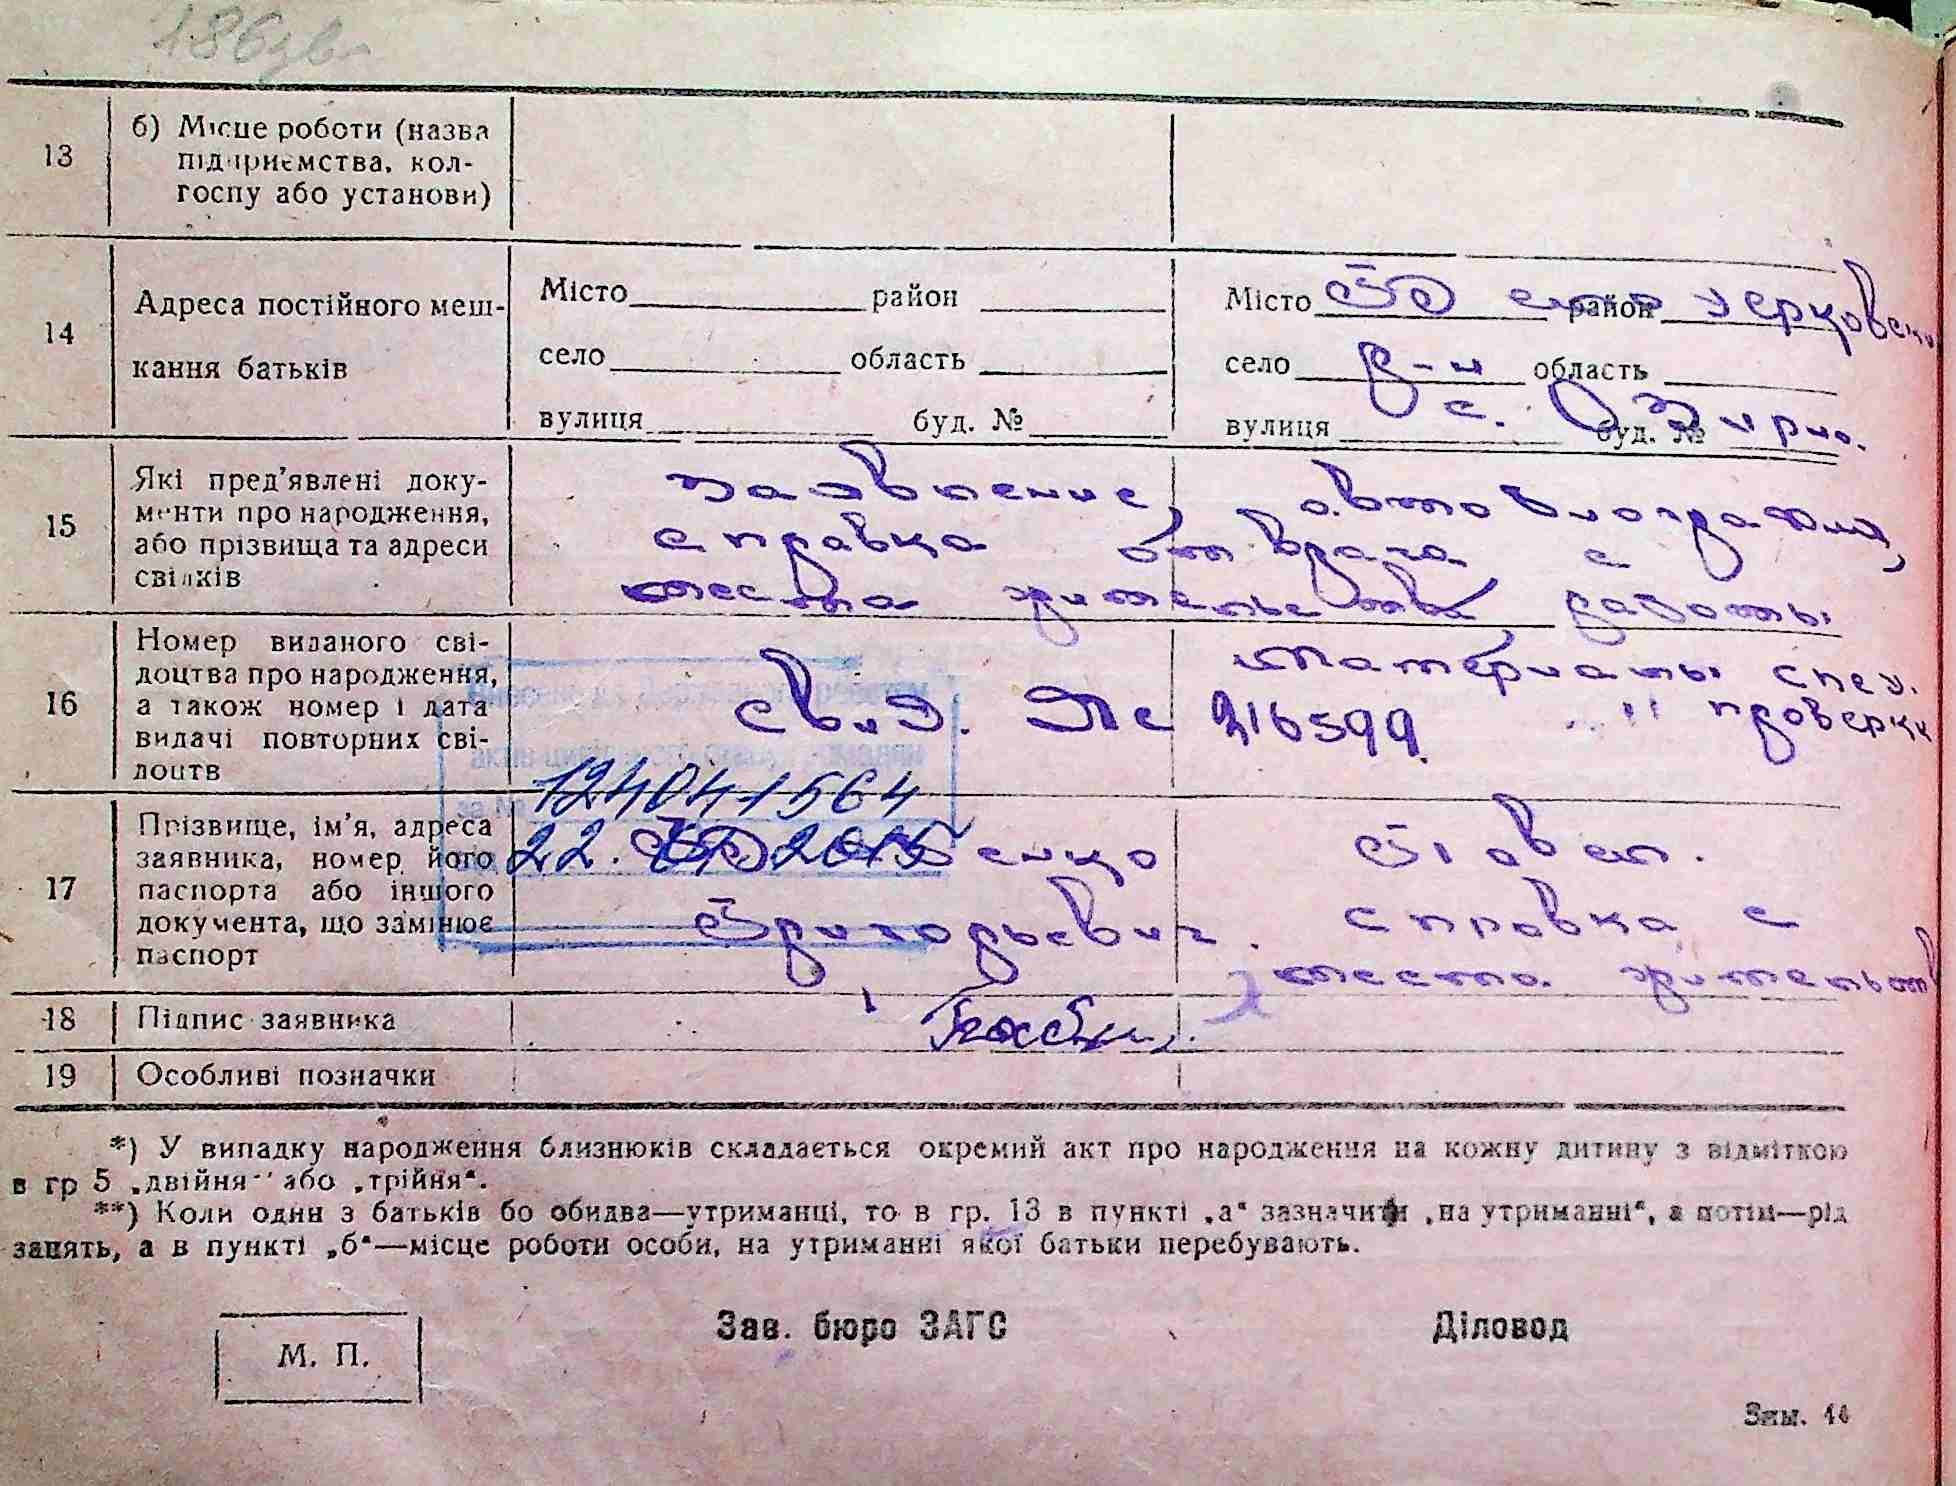 186 зв.
13 б) Місце роботи (назва
підприємства, кол-
госпу або установи)
14 Адреса постійного меш-
кання батьків
Місто район
село область
вулиця буд. №
Місто район
село р-н область
вулиця с. буд. №
15 Які пред'явлені доку-
менти про народження,
або прізвища та адреси
свідків
заявление, автобиография,
справка от врача с
места жительства, работы
материалы спец.
проверки
16 Номер виданого сві-
доцтва про народження,
а також номер і дата
видачі повторних сві-
доцтв
свид. 216599.
12404 1564
22. 2015
17 Прізвище, ім'я, адреса
заявника, номер його
паспорта або іншого
документа, що замінює
паспорт
Григорьевич.
справка с
места жительств
18 Підпис заявника
19 Особливі позначки
*) У випадку народження близнюків складається окремий акт про народження на кожну дитину з відміткою
в гр 5 „двійня" або „трійня“.
**) Коли один з батьків бо обидва—утриманці, то в гр. 13 в пункті „а“ зазначити „на утриманні“, а потім—рід
занять, а в пункті „б“—місце роботи особи, на утриманні якої батьки перебувають.
М. П.
Зав. бюро ЗАГС
Діловод